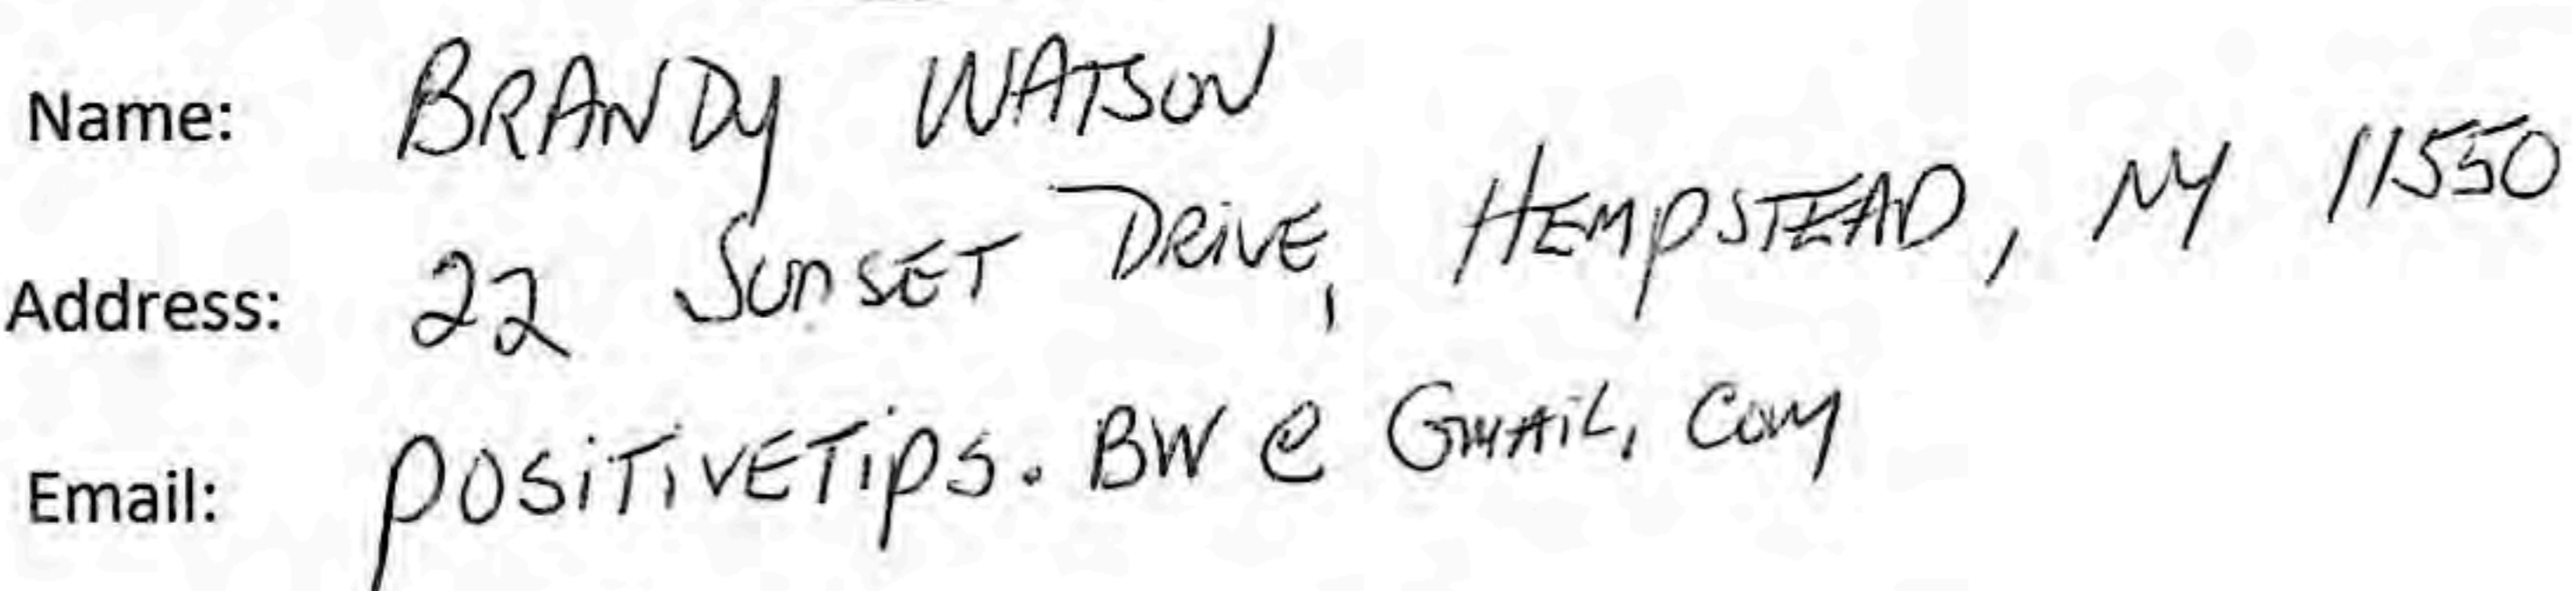 Name: BRANDY WATSON
Address: 22 SUNSET DRIVE, HEMPSTEAD, NY 11550
Email: POSITIVETIPS.BW@GMAIL.COM